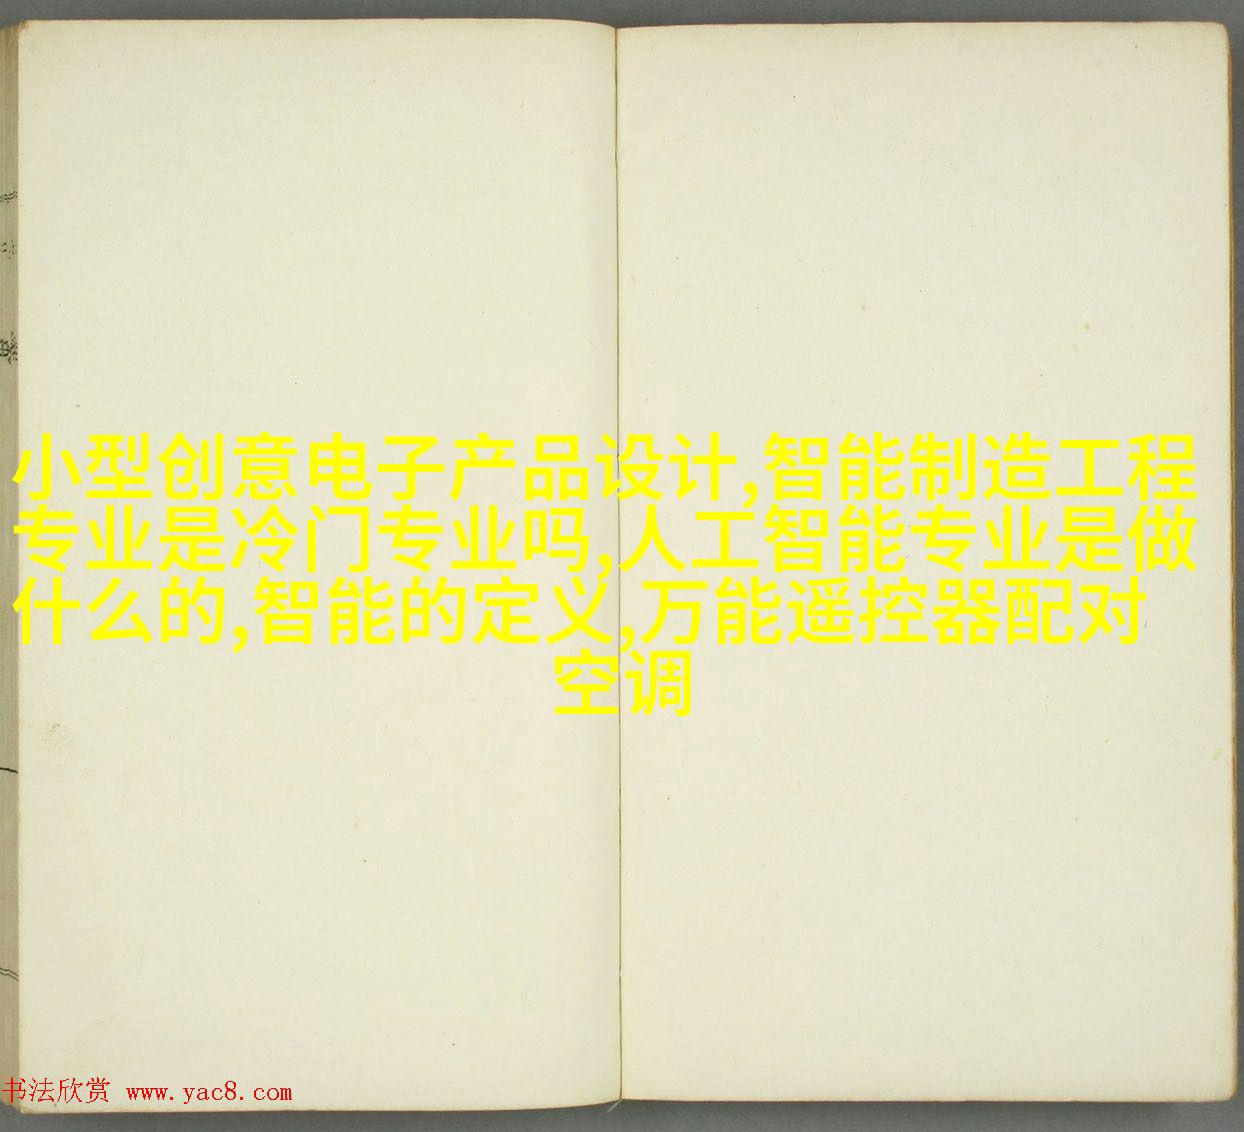 小型创意电子产品设计,智能制造工程
专业是冷门专业吗,人工智能专业是做
什么的,智能的定义,万能遥控器配对
空调
书法欣赏 www.yac8.com